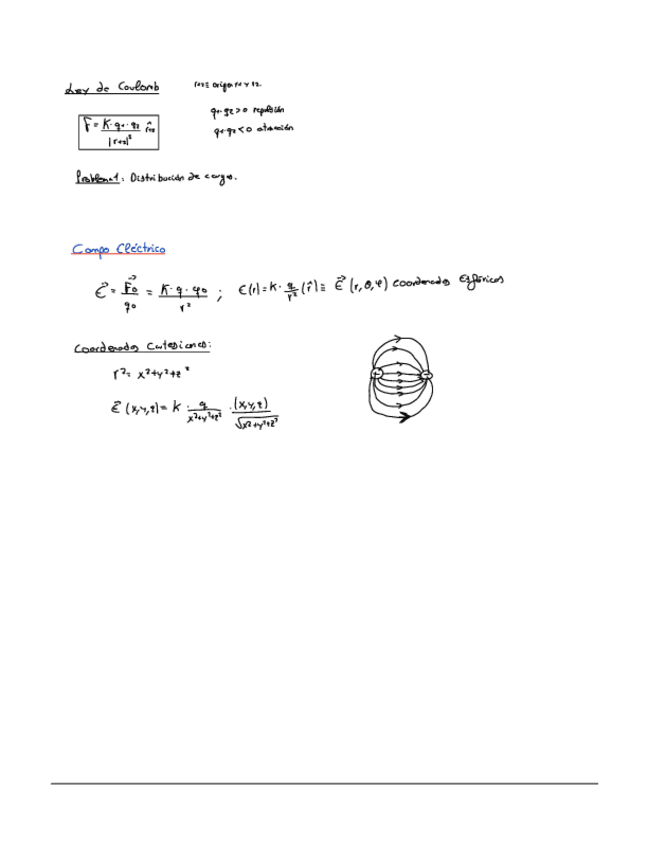 Ley de Coulomb
q₁·q₂ > 0 repulsión
F = K·q₁·q₂ / |r₁₂|² r̂₁₂
q₁·q₂ < 0 atracción
Problema 1: Distribución de cargas.
Campo Eléctrico
E⃗ = F⃗₀/q₀ = K·q·q₀/r² ; E(r) = K·q/r² (r̂) ≡ E⃗ (r, θ, φ) coordenadas Esféricas
Coordenadas Cartesianas:
r² = x²+y²+z²
+ -
E⃗ (x,y,z) = K · q/(x²+y²+z²) · (x,y,z)/√(x²+y²+z²)